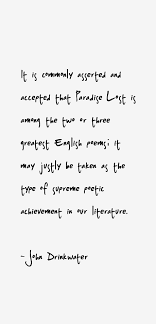 It is commonly asserted and
accepted that Paradise Lost is
among the two or three
greatest English poems; it
may justly be taken as the
type of supreme poetic
achievement in our literature.
- John Drinkwater